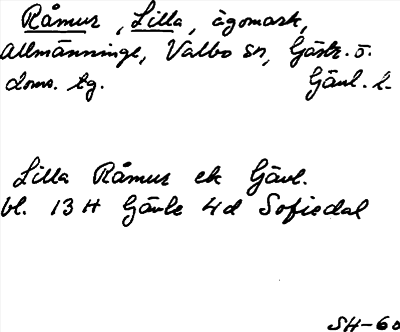 Råmur, Lilla, ägomark,
Allmänninge, Valbo sn, Gästr. ö.
doms. tg. Gävl. l.
Lilla Råmur ek Gävl.
bl. 13 H Gävle 4d Sofiedal
SH-60